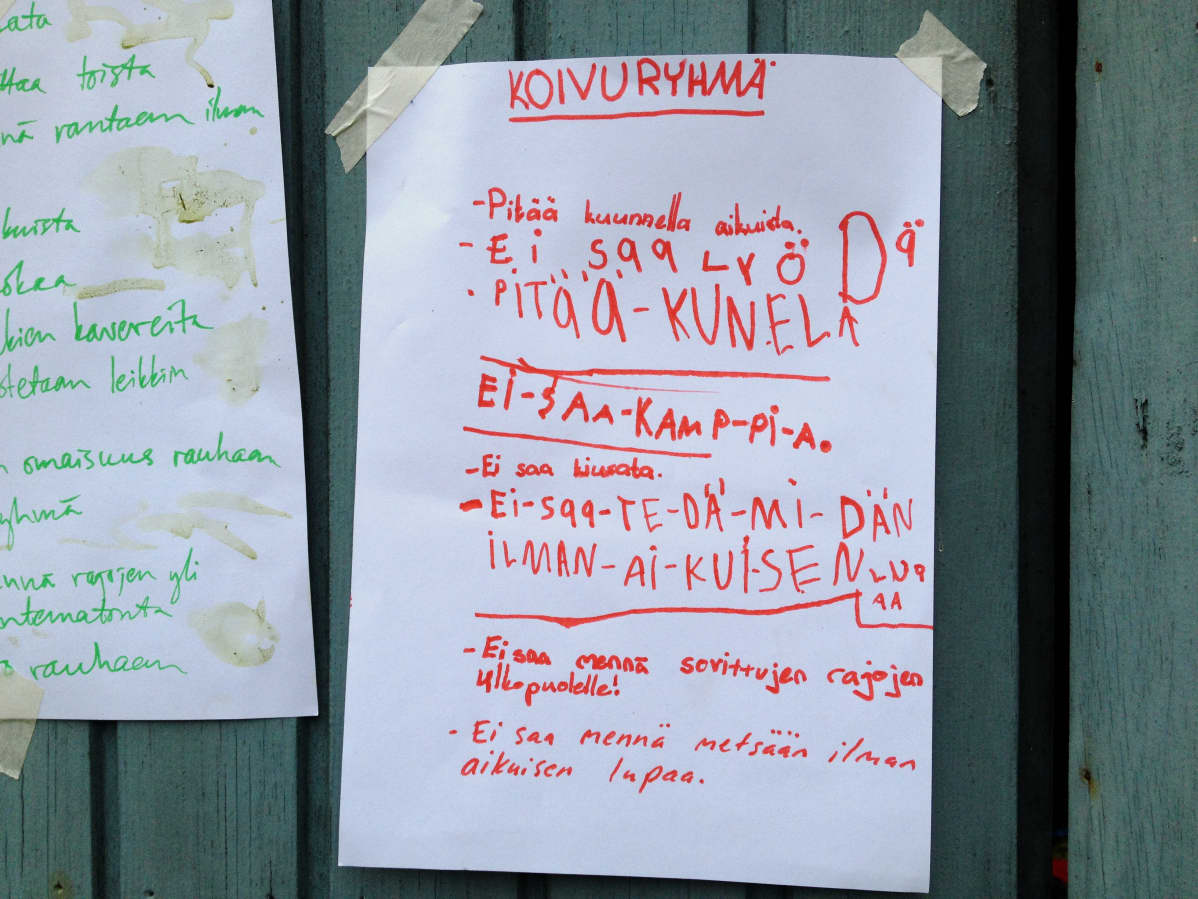 toista
rantaan ilman
kavereita
leikkiin
omaisuus rauhaan
rajojen yli
rauhaan
KOIVURYHMÄ
-Pitää kuunnella aikuista.
- Ei saa LYÖDä
· PITÄÄ-KUNELA
Ei-SAA-KAMP-Pi-A.
-Ei saa kiusata.
-Ei-saa-TE-DÄ-Mi-DÄN
iLMAN-Ai-KUiSEN LUP
AA
-Ei saa mennä sovittujen rajojen
ulkopuolelle!
- Ei saa mennä metsään ilman
aikuisen lupaa.